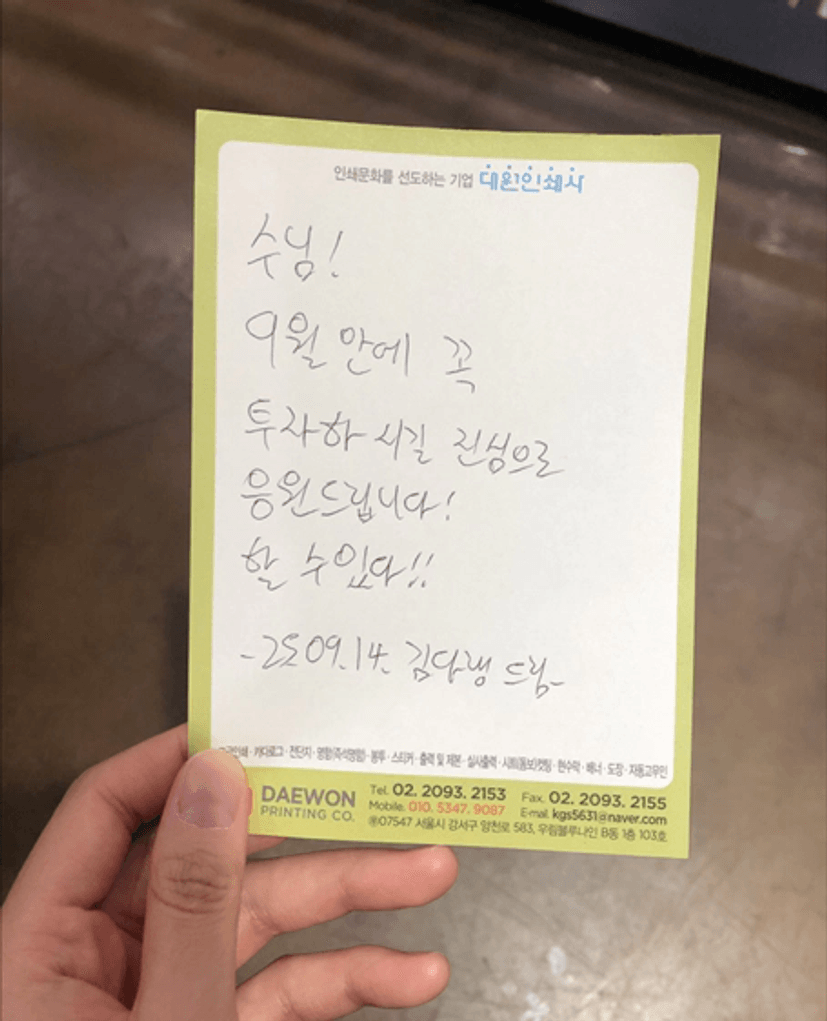 인쇄문화를 선도하는 기업 대원인쇄사
수님!
9월 안에 꼭
투자하시길 진심으로
응원드립니다!
할 수 있다!!
-25.09.14. 김다랭 드림-
카다로그·전단지·명함(즉석명함)·봉투·스티커·출력 및 제본·실사출력·시트(돔보)컷팅·현수막·배너·도장·자동고무인
DAEWON
PRINTING CO.
Tel. 02. 2093. 2153 Fax. 02. 2093. 2155
Mobile. 010. 5347. 9087 E-mail. kgs5631@naver.com
㉾07547 서울시 강서구 양천로 583, 우림블루나인 B동 1층 103호